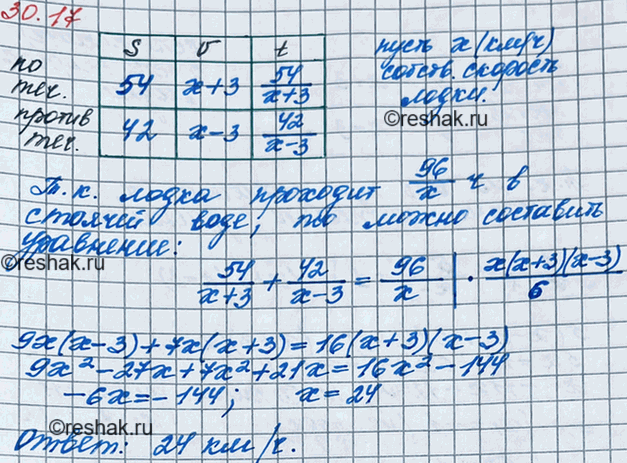 30.17
S v t
по теч. 54 x+3 54/(x+3)
против теч. 42 x-3 42/(x-3)
пусть x (км/ч)
собств. скорость
лодки.
©reshak.ru
Т.к. лодка проходит 96/x ч в
стоячей воде, то можно составить
уравнение:
©reshak.ru
54/(x+3) + 42/(x-3) = 96/x | · x(x+3)(x-3)/6
9x(x-3)+7x(x+3)=16(x+3)(x-3)
9x²-27x+7x²+21x=16x²-144
-6x=-144; x=24
©reshak.ru
Ответ: 24 км/ч.
©reshak.ru